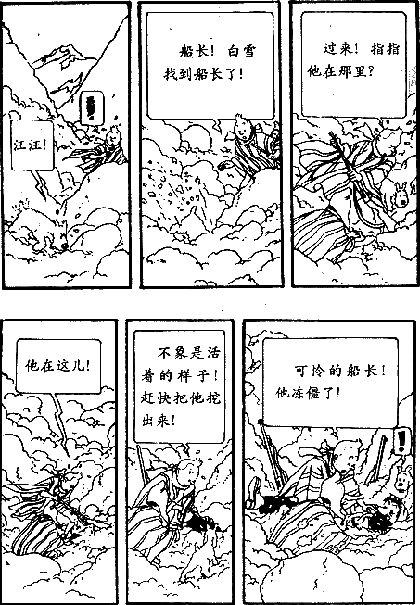 江江！
！
船长！白雪
找到船长了！
过来！指指
他在哪里？
他在这儿！
不象是活
着的样子！
赶快把他挖
出来！
可怜的船长！
他冻僵了！
！